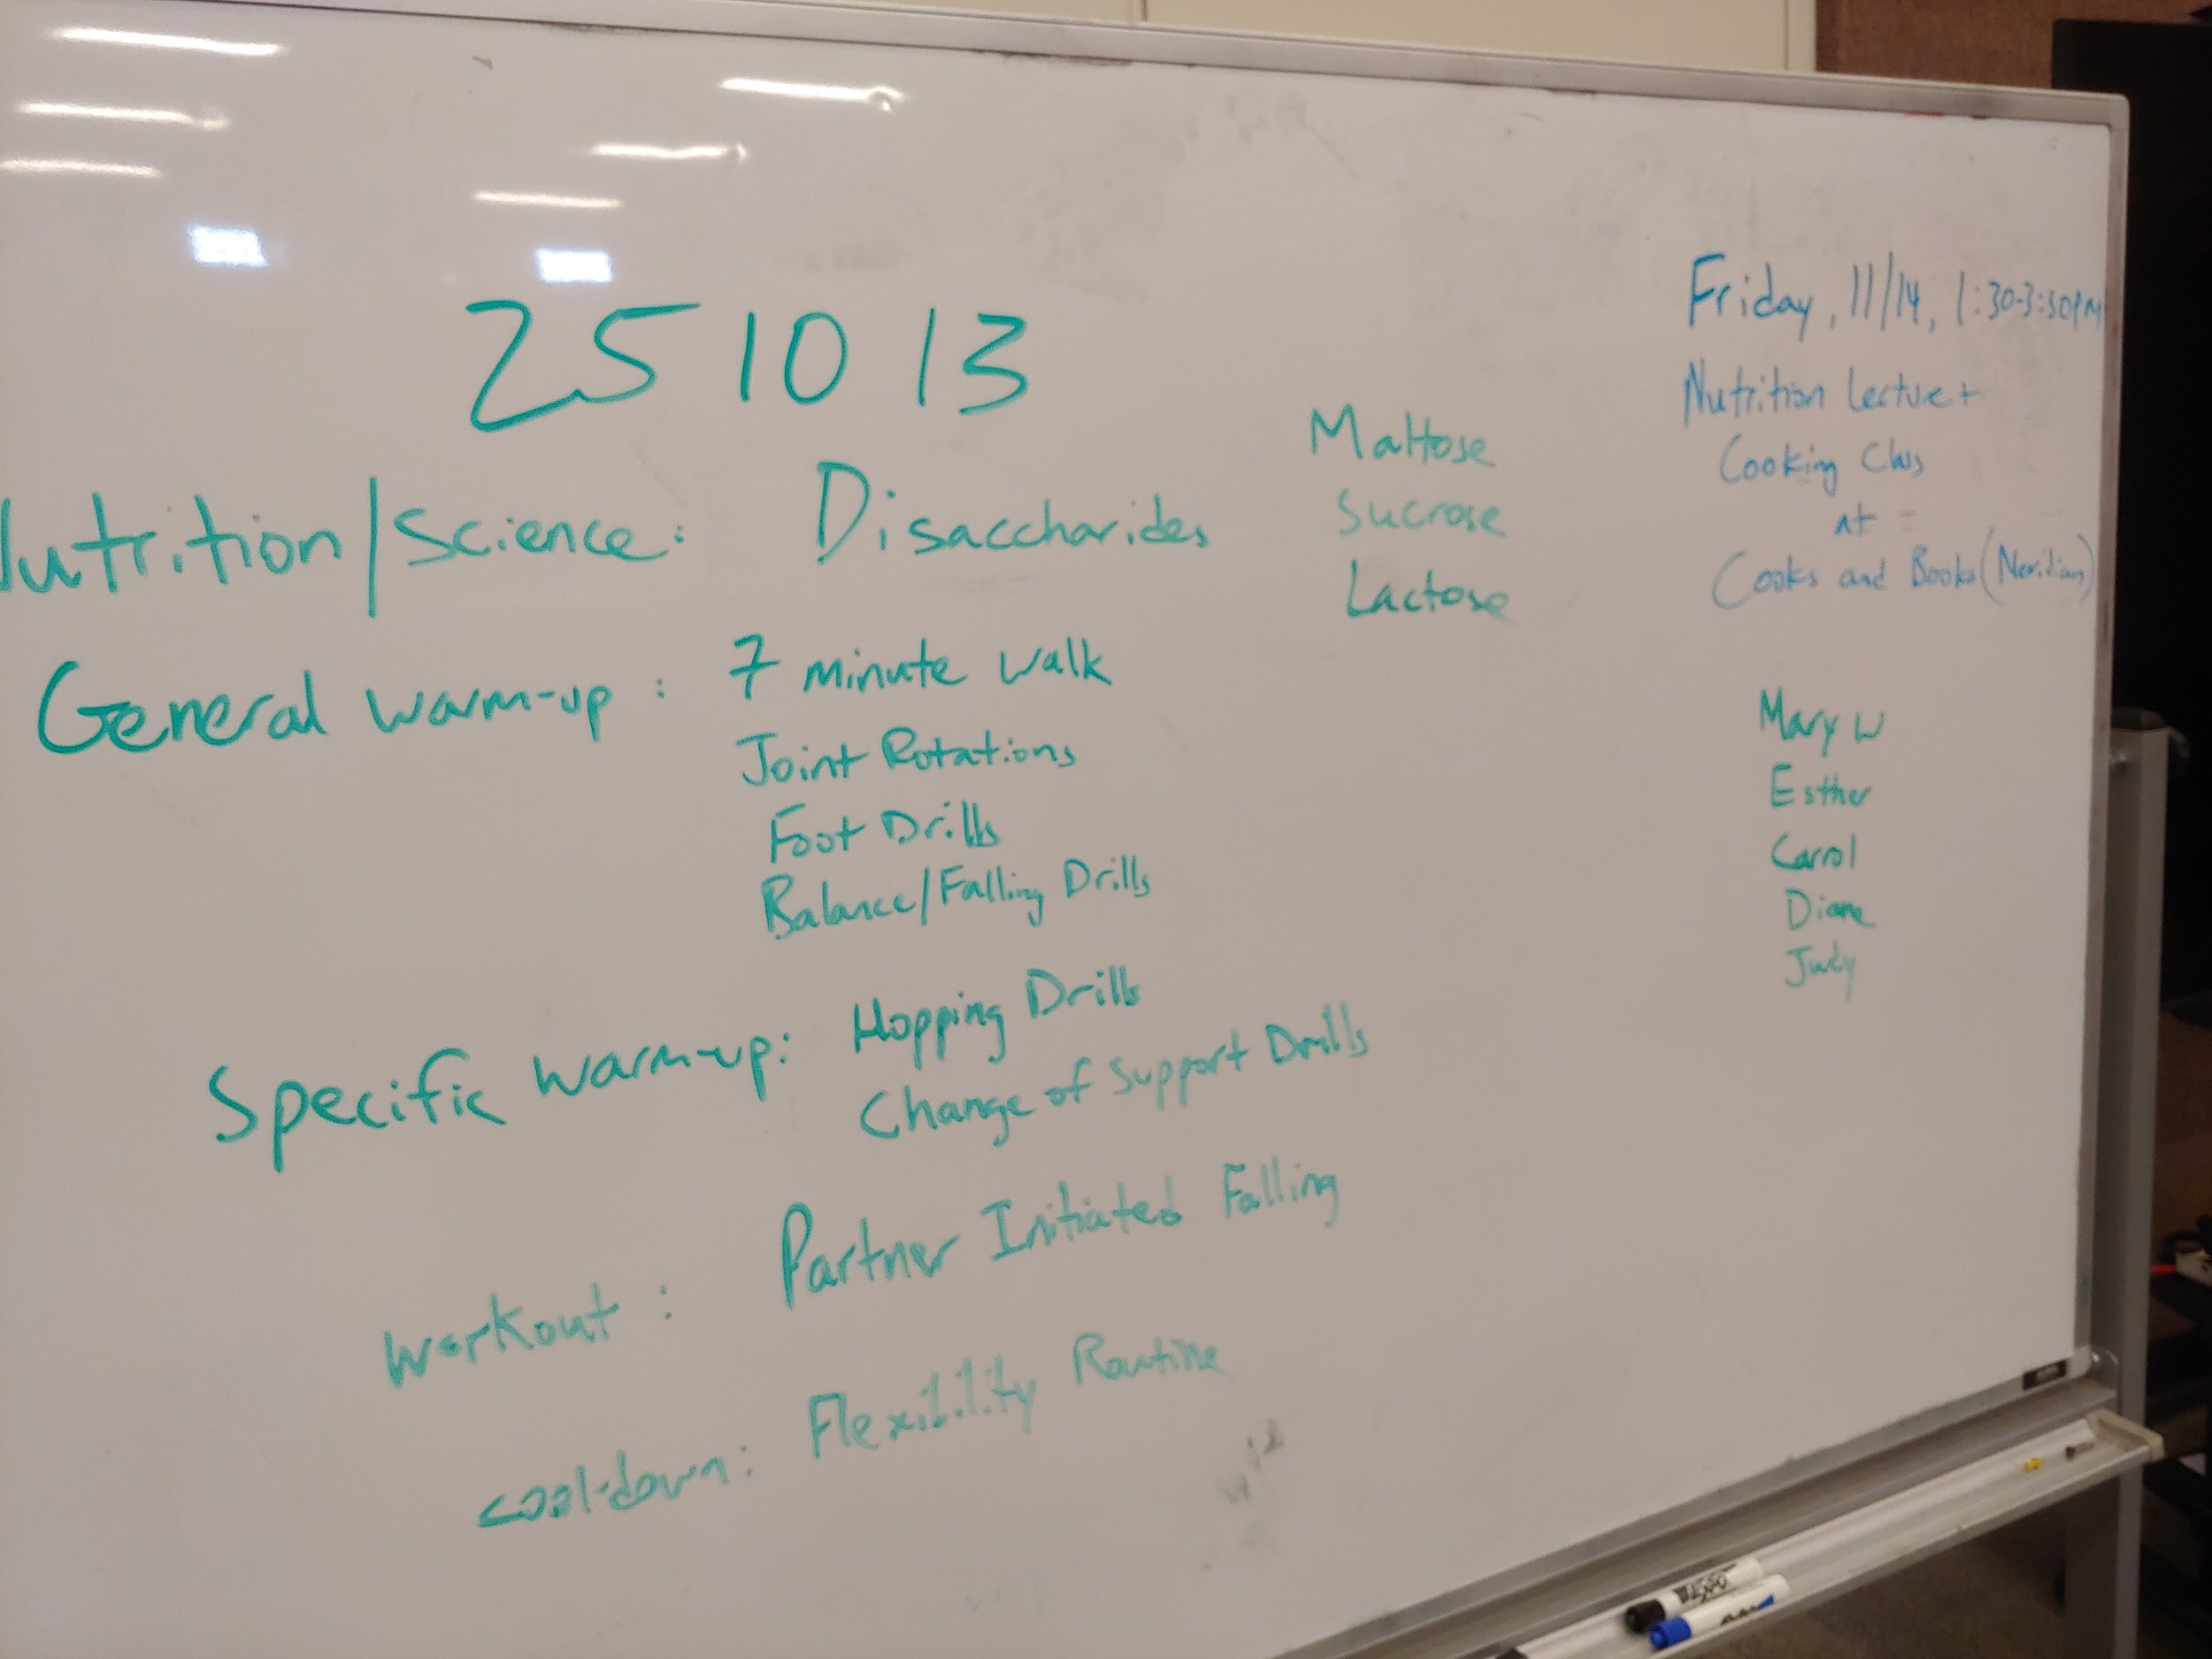 25 10 13
Nutrition/Science: Disaccharides
Maltose
Sucrose
Lactose
General warm-up: 7 minute walk
Joint Rotations
Foot Drills
Balance/Falling Drills
Specific warm-up: Hopping Drills
Change of Support Drills
Workout: Partner Initiated Falling
cool-down: Flexibility Routine
Friday, 11/14, 1:30-3:30PM
Nutrition Lecture +
Cooking Class
at
Cooks and Books
Mary W
Esther
Carrol
Diane
Judy
EXPO